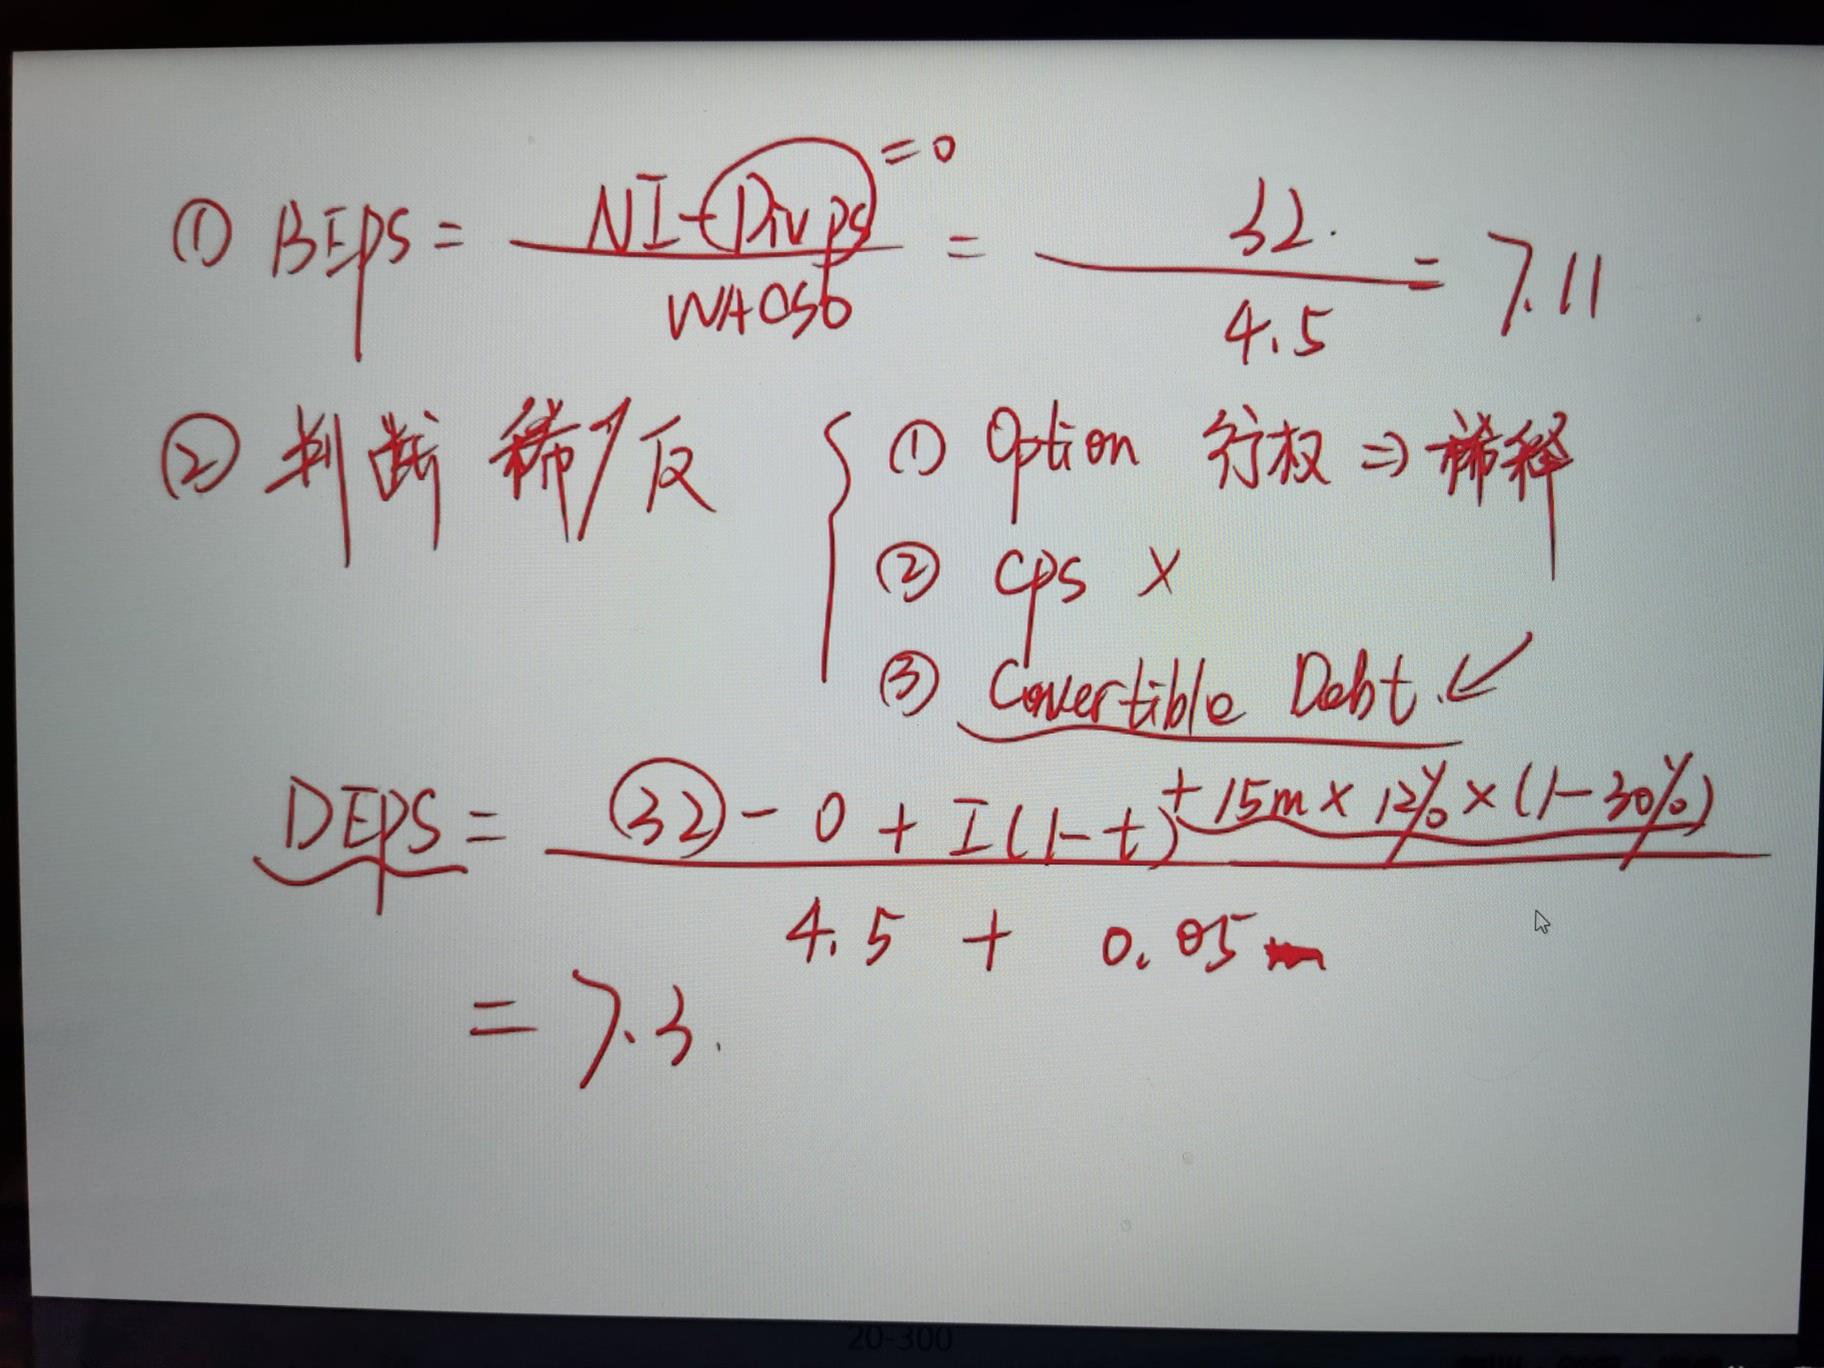 ① BEPS = NI - Div ps / WAOSO = 32. / 4.5 = 7.11
= 0
② 判断 稀/反
① Option 行权 ⇒ 稀释
② cps ×
③ Covertible Debt. ↙
DEPS = 32 - 0 + I(1-t) + 15m × 12% × (1-30%) / 4.5 + 0.05m
= 7.3.
20-300